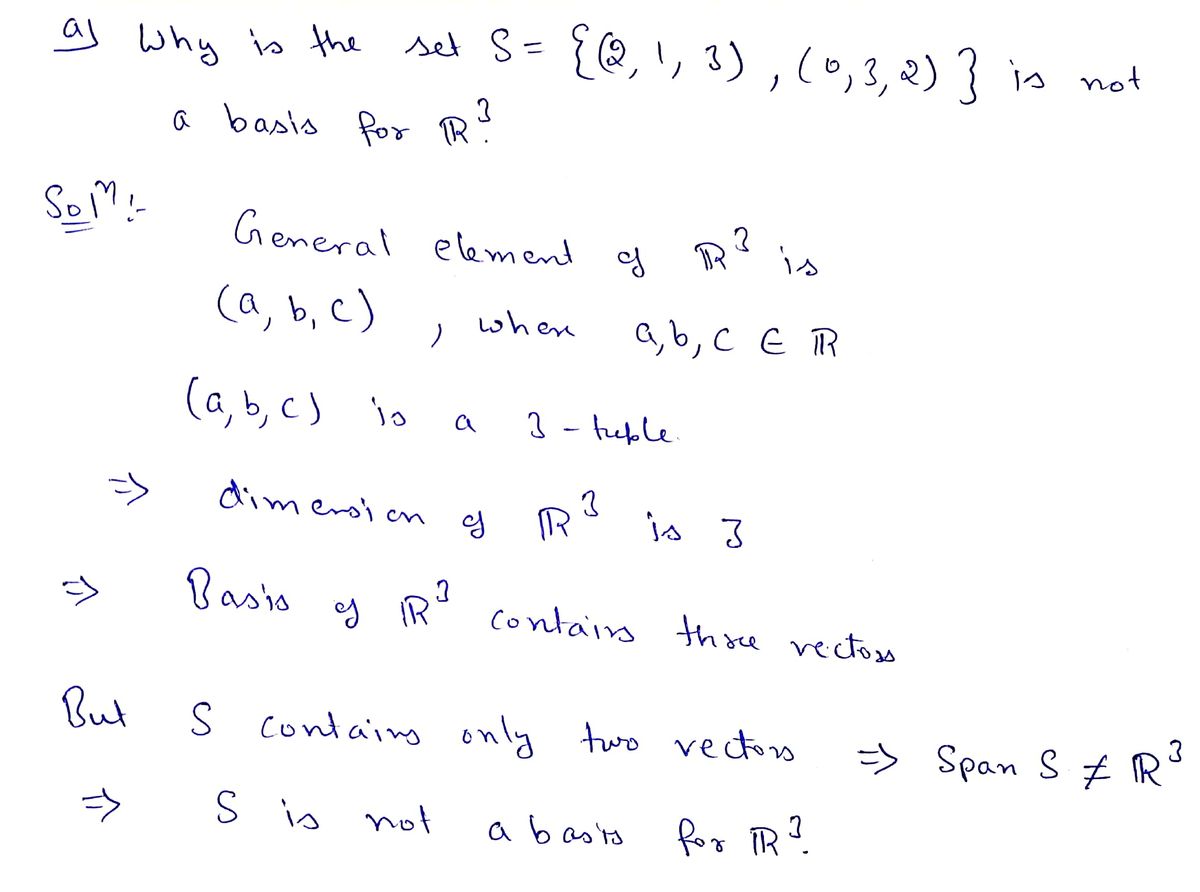 a) Why is the set S = {(2, 1, 3), (0, 3, 2)} is not
a basis for ℝ³?
Solⁿ:-
General element of ℝ³ is
(a, b, c), where a, b, c ∈ ℝ
(a, b, c) is a 3-tuple.
⇒ dimension of ℝ³ is 3
⇒ Basis of ℝ³ contains three vectors
But S contains only two vectors ⇒ Span S ≠ ℝ³
⇒ S is not a basis for ℝ³.